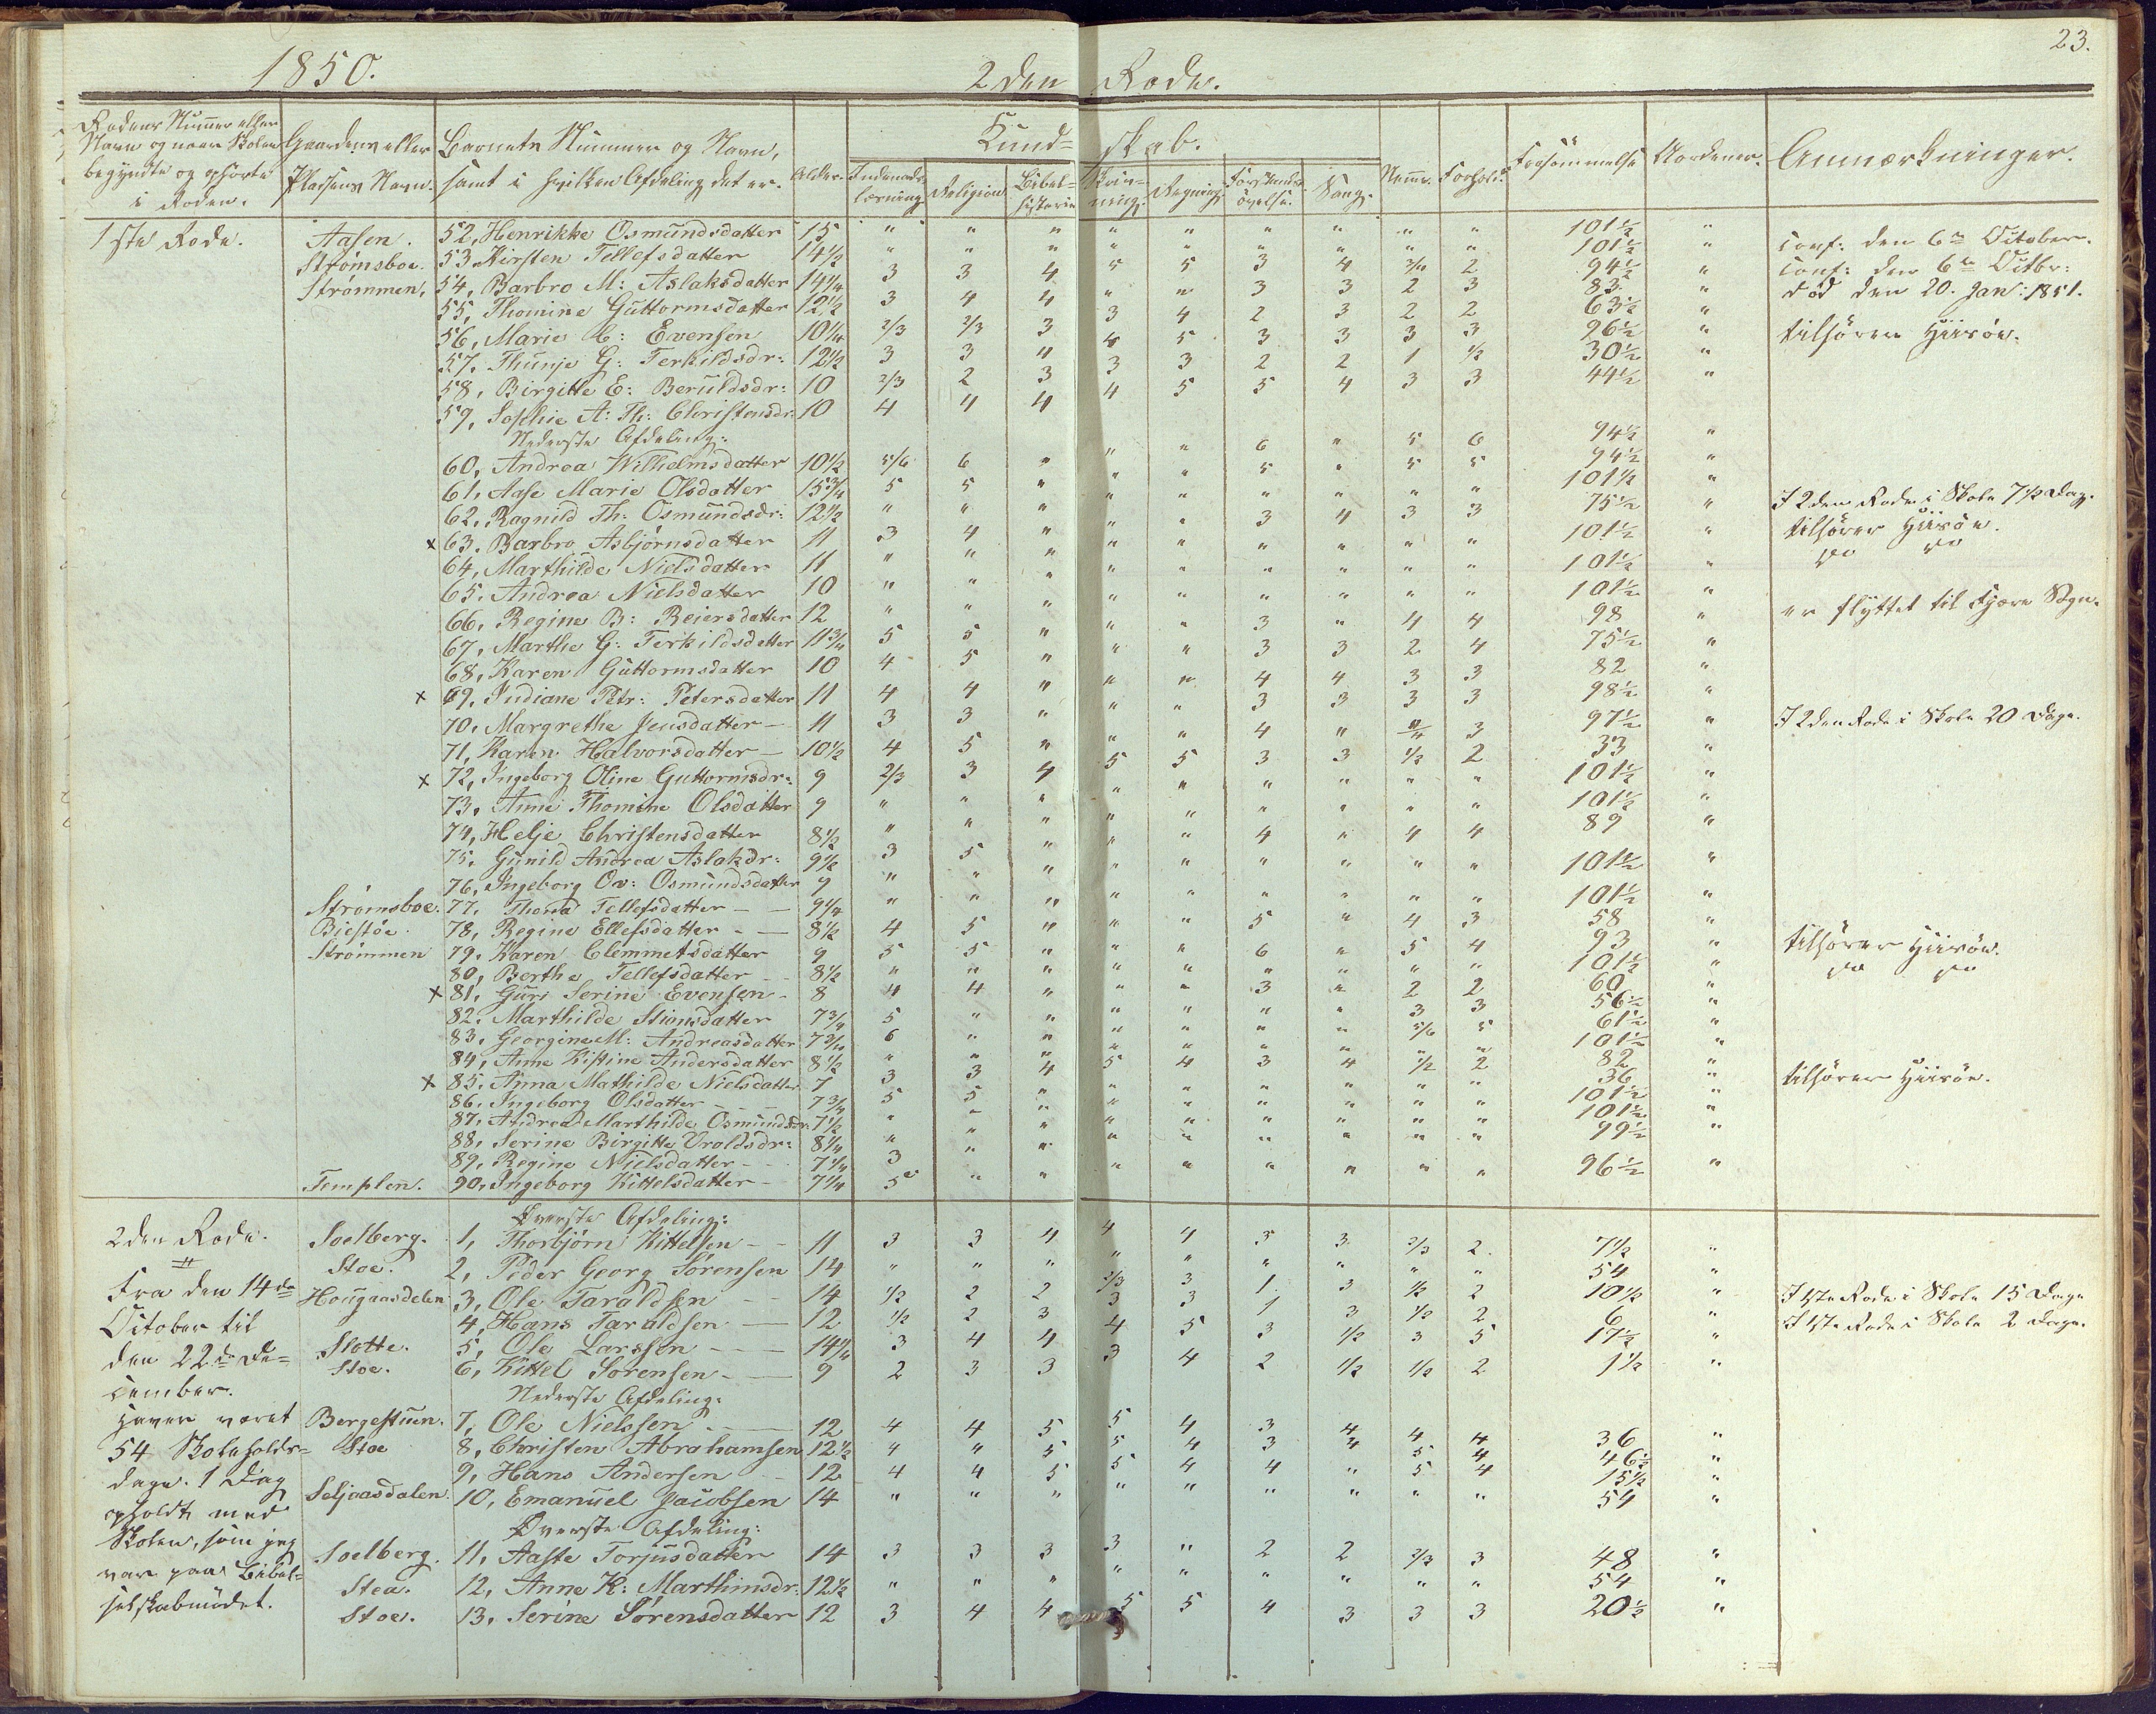 23.
1850. 2den Rode.
Rodens Nummer eller Navn og naar Skolen begyndte og ophörte i Roden. | Gaardens eller Pladsens Navn. | Barnets Nummer og Navn, samt i hvilken Afdeling det er. | Alder. | Kundskab. | Forhold. | Forsömmelse | Anmærkninger.
Indenadslæsning | Religion | Bibelhistorie | Skrivning | Regning | Forstandsövelse | Sang | Nemme
1ste Rode. Aasen. 52, Henrikke Osmundsdatter 15 " " " " " " " " " 101½ " Conf: den 6te October.
Strömsboe. 53. Kirsten Tellefsdatter 14½ " " " " " " " " " 101½ " Conf: den 6te Octbr:
Strömmen, 54, Barbro M: Aslaksdatter 14¼ 3 3 4 5 5 3 4 2 94½ " död den 20. Jan: 1851.
55, Thomine Guttormsdatter 12½ 3 4 4 " " 3 3 2 3 83 "
56, Marie C: Evensen 10¼ 2/3 2/3 3 3 4 2 3 2 2 63½ " tilhörer Hiisöe.
57, Thunje G: Terkildsdr: 12½ 3 3 4 4 5 3 3 3 3 96½ "
58, Birgitte E: Beruldsdr: 10 2/3 2 3 3 3 2 2 1 ½ 30½ "
59, Sophie A: Th: Christensdr: 10 4 4 4 4 5 5 4 3 3 44½ "
Nederste Afdeling:
60, Andrea Wilhelmsdatter 10½ 5/6 6 " " " 6 " 5 6 94½ "
61, Aase Marie Olsdatter 15¾ 5 5 " " " 5 " 5 5 94½ "
62, Ragnild Th: Osmundsdr: 12½ " " " " " " " " " 101½ "
x 63. Barbro Asbjörnsdatter 11 3 4 " " " 3 4 3 3 75½ " I 2den Rode i Skole 7½ Dag.
64, Marthilde Nielsdatter 11 " " " " " " " " " 101½ " tilhörer Hiisöe.
65. Andrea Nielsdatter 10 " " " " " " " " " 101½ " do do
66, Regine B: Reiersdatter 12 " " " " " " " " " 101½ " er flyttet til Fjære Sogn.
67, Marthe G: Terkildsdatter 11¾ 5 5 " " " 3 " 4 4 98 "
68, Karen Guttormsdatter 10 4 5 " " " 3 3 2 4 75½ "
x 69. Indiane Petr: Petersdatter 11 4 4 " " " 4 4 3 3 82 "
70, Margrethe Jensdatter 11 3 3 " " " 3 3 3 3 98½ "
71, Karen Halvorsdatter 10½ 4 5 " " " 4 " 3 97½ " I 2den Rode i Skole 20 Dage.
x 72, Ingeborg Oline Guttormsdr: 9 2/3 3 4 5 5 3 3 ½ 2 33 "
73, Anne Thomine Olsdatter 9 " " " " " " " " " 101½ "
74, Helje Christensdatter 8½ " " " " " " " " " 101½ "
75, Gunild Andrea Aslakdr: 9½ 3 5 " " " 4 " 4 4 89 "
76, Ingeborg Ov: Osmundsdatter 9 " " " " " " " " " 101½ "
Strömsboe. 77. Thona Tellefsdatter 9¼ " " " " " " " " " 101½ "
Biestöe. 78, Regine Ellefsdatter 8½ 4 5 " " " 5 " 4 3 58 "
Strömmen 79. Karen Clemmetsdatter 9 5 5 " " " 6 " 5 4 93 " tilhörer Hiisöe.
80, Berthe Tellefsdatter 8½ " " " " " " " " " 101½ " do do
x 81, Guri Serine Evensen 8 4 4 " " " 3 " 2 2 60 "
82. Marthilde Stiansdatter 7¾ 5 " " " " " " 3 3 56½ "
83. Georgine M: Andreasdatter 7¾ 6 " " " " " " 5/6 5 61½ "
84, Anne Kistine Andersdatter 8½ " " " " " " " " " 101½ "
x 85. Anna Mathilde Nielsdatter 7 3 3 4 5 4 3 4 ½ 2 82 " tilhörer Hiisöe.
86. Ingeborg Olsdatter 7¾ 5 5 " " " " " " " 36 "
87. Andrea Marthilde Osmundsdr. 7½ " " " " " " " " " 101½ "
88, Serine Birgitte Uroldsdr: 8¼ " " " " " " " " " 101½ "
89, Regine Nielsdatter 7¼ 3 " " " " " " " " 99½ "
Templen. 90, Ingeborg Kittelsdatter 7¼ 5 " " " " " " " " 96½ "
Överste Afdeling:
2den Rode. Soelberg. 1, Thorbjörn Kittelsen 11 3 3 4 4 4 3 3 2/3 2 7½ "
Stoe. 2, Peder Georg Sörensen 14 " " " " " " " " " 54 "
Fra den 14de Hougaasdelen 3, Ole Taraldsen 14 ½ 2 2 2/3 3 1 3 ½ 2 10½ " I 1ste Rode i Skole 15 Dage
October til 4, Hans Taraldsen 12 ½ 2 3 3 3 1 3 ½ 2 6 " I 1ste Rode i Skole 2 Dage.
den 22de De= Slotte. 5, Ole Larssen 14¼ 3 4 4 4 5 3 ½ 3 5 17½ "
cember. Stoe. 6, Kittel Sörensen 9 2 3 3 3 4 2 ½ ½ 2 1½ "
Nederste Afdeling:
haver været Bergestuen. 7, Ole Nielssen 12 4 4 5 5 4 3 4 4 4 36 "
54 Skoleholds= Stoe 8, Christen Abrahamsen 12½ 4 4 5 5 4 3 4 5 4 46½ "
dage. 1 Dag 9, Hans Andersen 12 4 4 5 5 4 4 " 5 4 15½ "
opholdt med Seljaasdalen. 10, Emanuel Jacobsen 14 " " " " " " " " " 54 "
Överste Afdeling:
Skolen, som jeg Soelberg. 11, Aaste Torjusdatter 14 3 3 3 3 " 2 2 2/3 3 48 "
var paa Bibel= Stea. 12, Anne K: Marthinsdr. 12½ " " " " " " " " " 54 "
selskabmödet. Stoe. 13, Serine Sörensdatter 12 3 4 4 5 5 4 3 3 3 20½ "